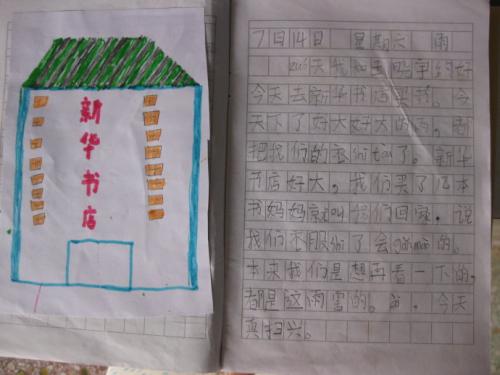 新华书店
7月14日 星期六 雨
昨天我和妈妈约好
今天去新华书店买书。今
天下了好大好大的雨。雨
把我们的衣们了。新华
书店好大。我们买了几本
书妈妈就叫我们回家。说
我们衣服们了会gǎnmào的。
本来我们是想再看一下的,
都是这雨害的。今天
真扫兴。